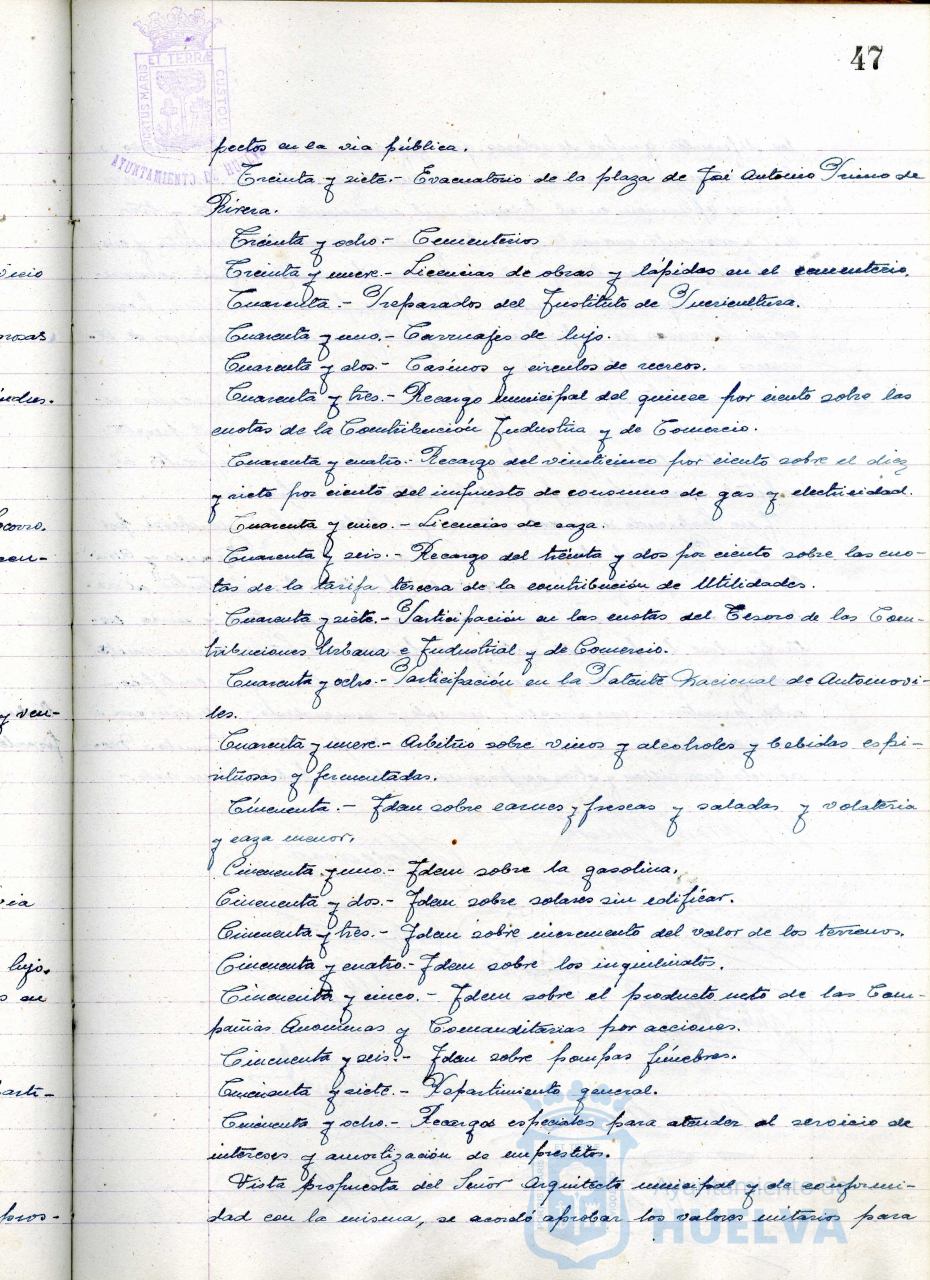 47
PORTUS MARIS ET TERRÆ CUSTODIA
AYUNTAMIENTO DE HUELVA
pectos en la via pública.
Treinta y siete.- Evacuatorio de la plaza de José Antonio Primo de
Rivera.
Treinta y ocho.- Cementerios
Treinta y nueve.- Licencias de obras y lápidas en el cementerio.
Cuarenta.- Preparados del Instituto de Puericultura.
Cuarenta y uno.- Carruajes de lujo.
Cuarenta y dos.- Casinos y circulos de recreos.
Cuarenta y tres.- Recargo municipal del quince por ciento sobre las
cuotas de la Contribución Industria y de Comercio.
Cuarenta y cuatro.- Recargo del veinticinco por ciento sobre el diez
y siete por ciento del impuesto de consumo de gas y electricidad.
Cuarenta y cinco.- Licencias de caza.
Cuarenta y seis.- Recargo del treinta y dos por ciento sobre las cuo-
tas de la tarifa tercera de la contribución de Utilidades.
Cuarenta y siete.- Participación en las cuotas del Tesoro de las Con-
tribuciones Urbana e Industrial y de Comercio.
Cuarenta y ocho.- Participación en la Patente Nacional de Automovi-
les.
Cuarenta y nueve.- Arbitrio sobre vinos y alcoholes y bebidas espi-
rituosas y fermentadas.
Cincuenta.- Idem sobre carnes y frescas y saladas y volateria
y caza menor.
Cincuenta y uno.- Idem sobre la gasolina.
Cincuenta y dos.- Idem sobre solares sin edificar.
Cincuenta y tres.- Idem sobre incremento del valor de los terrenos.
Cincuenta y cuatro.- Idem sobre los inquilinatos.
Cincuenta y cinco.- Idem sobre el producto neto de las Com-
pañias Anonimas y Comanditarias por acciones.
Cincuenta y seis.- Idem sobre pompas fúnebres.
Cincuenta y siete.- Repartimiento general.
Cincuenta y ocho.- Recargos especiales para atender al servicio de
intereses y amortización de emprestitos.
Vista propuesta del Señor Arquitecto municipal y de conformi-
dad con la misma, se acordó aprobar los valores unitarios para
Ayuntamiento de
HUELVA